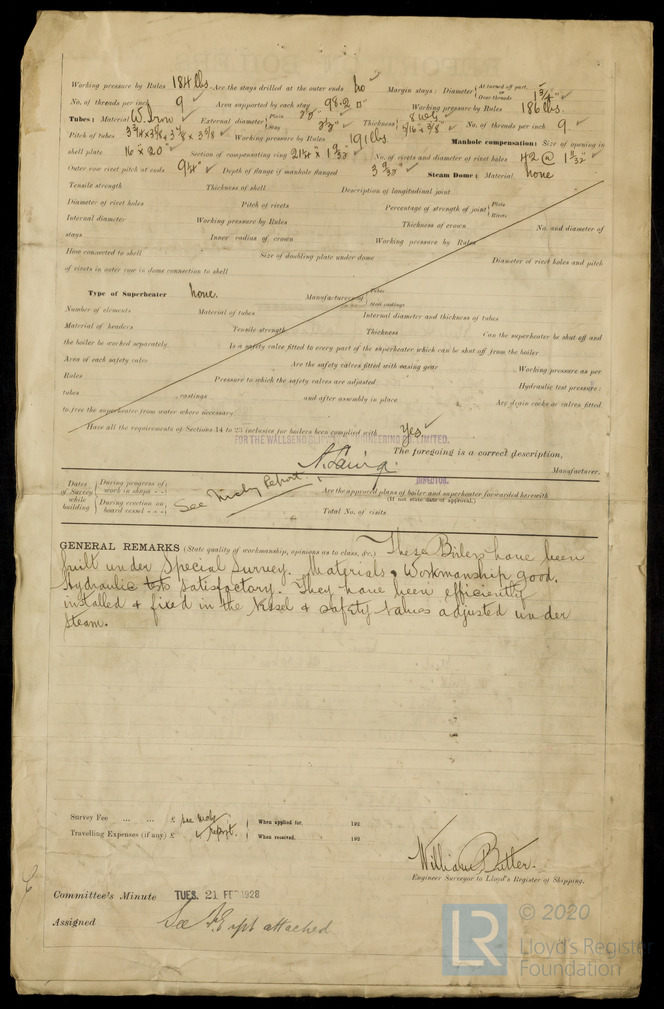 Working pressure by Rules 184 lbs. Are the stays drilled at the outer ends No Margin stays: Diameter { At turned off part, or Over threads 1 3/4"
No. of threads per inch 9 Area supported by each stay 98.2 □" Working pressure by Rules 186 lbs.
Tubes: Material W. Iron External diameter { Plain Stay Thickness { 8 WG 5/16 & 3/8" No. of threads per inch 9.
Pitch of tubes Working pressure by Rules 191 lbs Manhole compensation: Size of opening in
shell plate 16" x 20" Section of compensating ring No. of rivets and diameter of rivet holes 42 @ 1 5/32"
Outer row rivet pitch at ends 9 1/4" Depth of flange if manhole flanged Steam Dome: Material None
Tensile strength Thickness of shell Description of longitudinal joint
Diameter of rivet holes Pitch of rivets Percentage of strength of joint { Plate Rivets
Internal diameter Working pressure by Rules Thickness of crown No. and diameter of
stays Inner radius of crown Working pressure by Rules
How connected to shell Size of doubling plate under dome Diameter of rivet holes and pitch
of rivets in outer row in dome connection to shell
Type of Superheater None. Manufacturers of { Tubes Steel castings
Number of elements Material of tubes Internal diameter and thickness of tubes
Material of headers Tensile strength Thickness Can the superheater be shut off and
the boiler be worked separately Is a safety valve fitted to every part of the superheater which can be shut off from the boiler
Area of each safety valve Are the safety valves fitted with easing gear Working pressure as per
Rules Pressure to which the safety valves are adjusted Hydraulic test pressure:
tubes , castings and after assembly in place Are drain cocks or valves fitted
to free the superheater from water where necessary
Have all the requirements of Sections 14 to 23 inclusive for boilers been complied with Yes
FOR THE WALLSEND SLIPWAY & ENGINEERING CO. LIMITED.
The foregoing is a correct description,
A. Laing.
DIRECTOR.
Manufacturer.
Dates of Survey while building { During progress of work in shops - - } { During erection on board vessel - - - } See Mchy Report.
Are the approved plans of boiler and superheater forwarded herewith
(If not state date of approval.)
Total No. of visits
GENERAL REMARKS (State quality of workmanship, opinions as to class, &c.) These Boilers have been
built under Special Survey. Materials & Workmanship good.
Hydraulic tests satisfactory. They have been efficiently
installed & fixed in the Vessel & safety valves adjusted under
steam.
Survey Fee ... ... £ see Mchy When applied for, 192
Travelling Expenses (if any) £ report. When received, 192
William Butler.
Engineer Surveyor to Lloyd's Register of Shipping.
Committee's Minute TUES. 21 FEB 1928
Assigned See F.E. rpt attached
LR © 2020
Lloyd's Register
Foundation